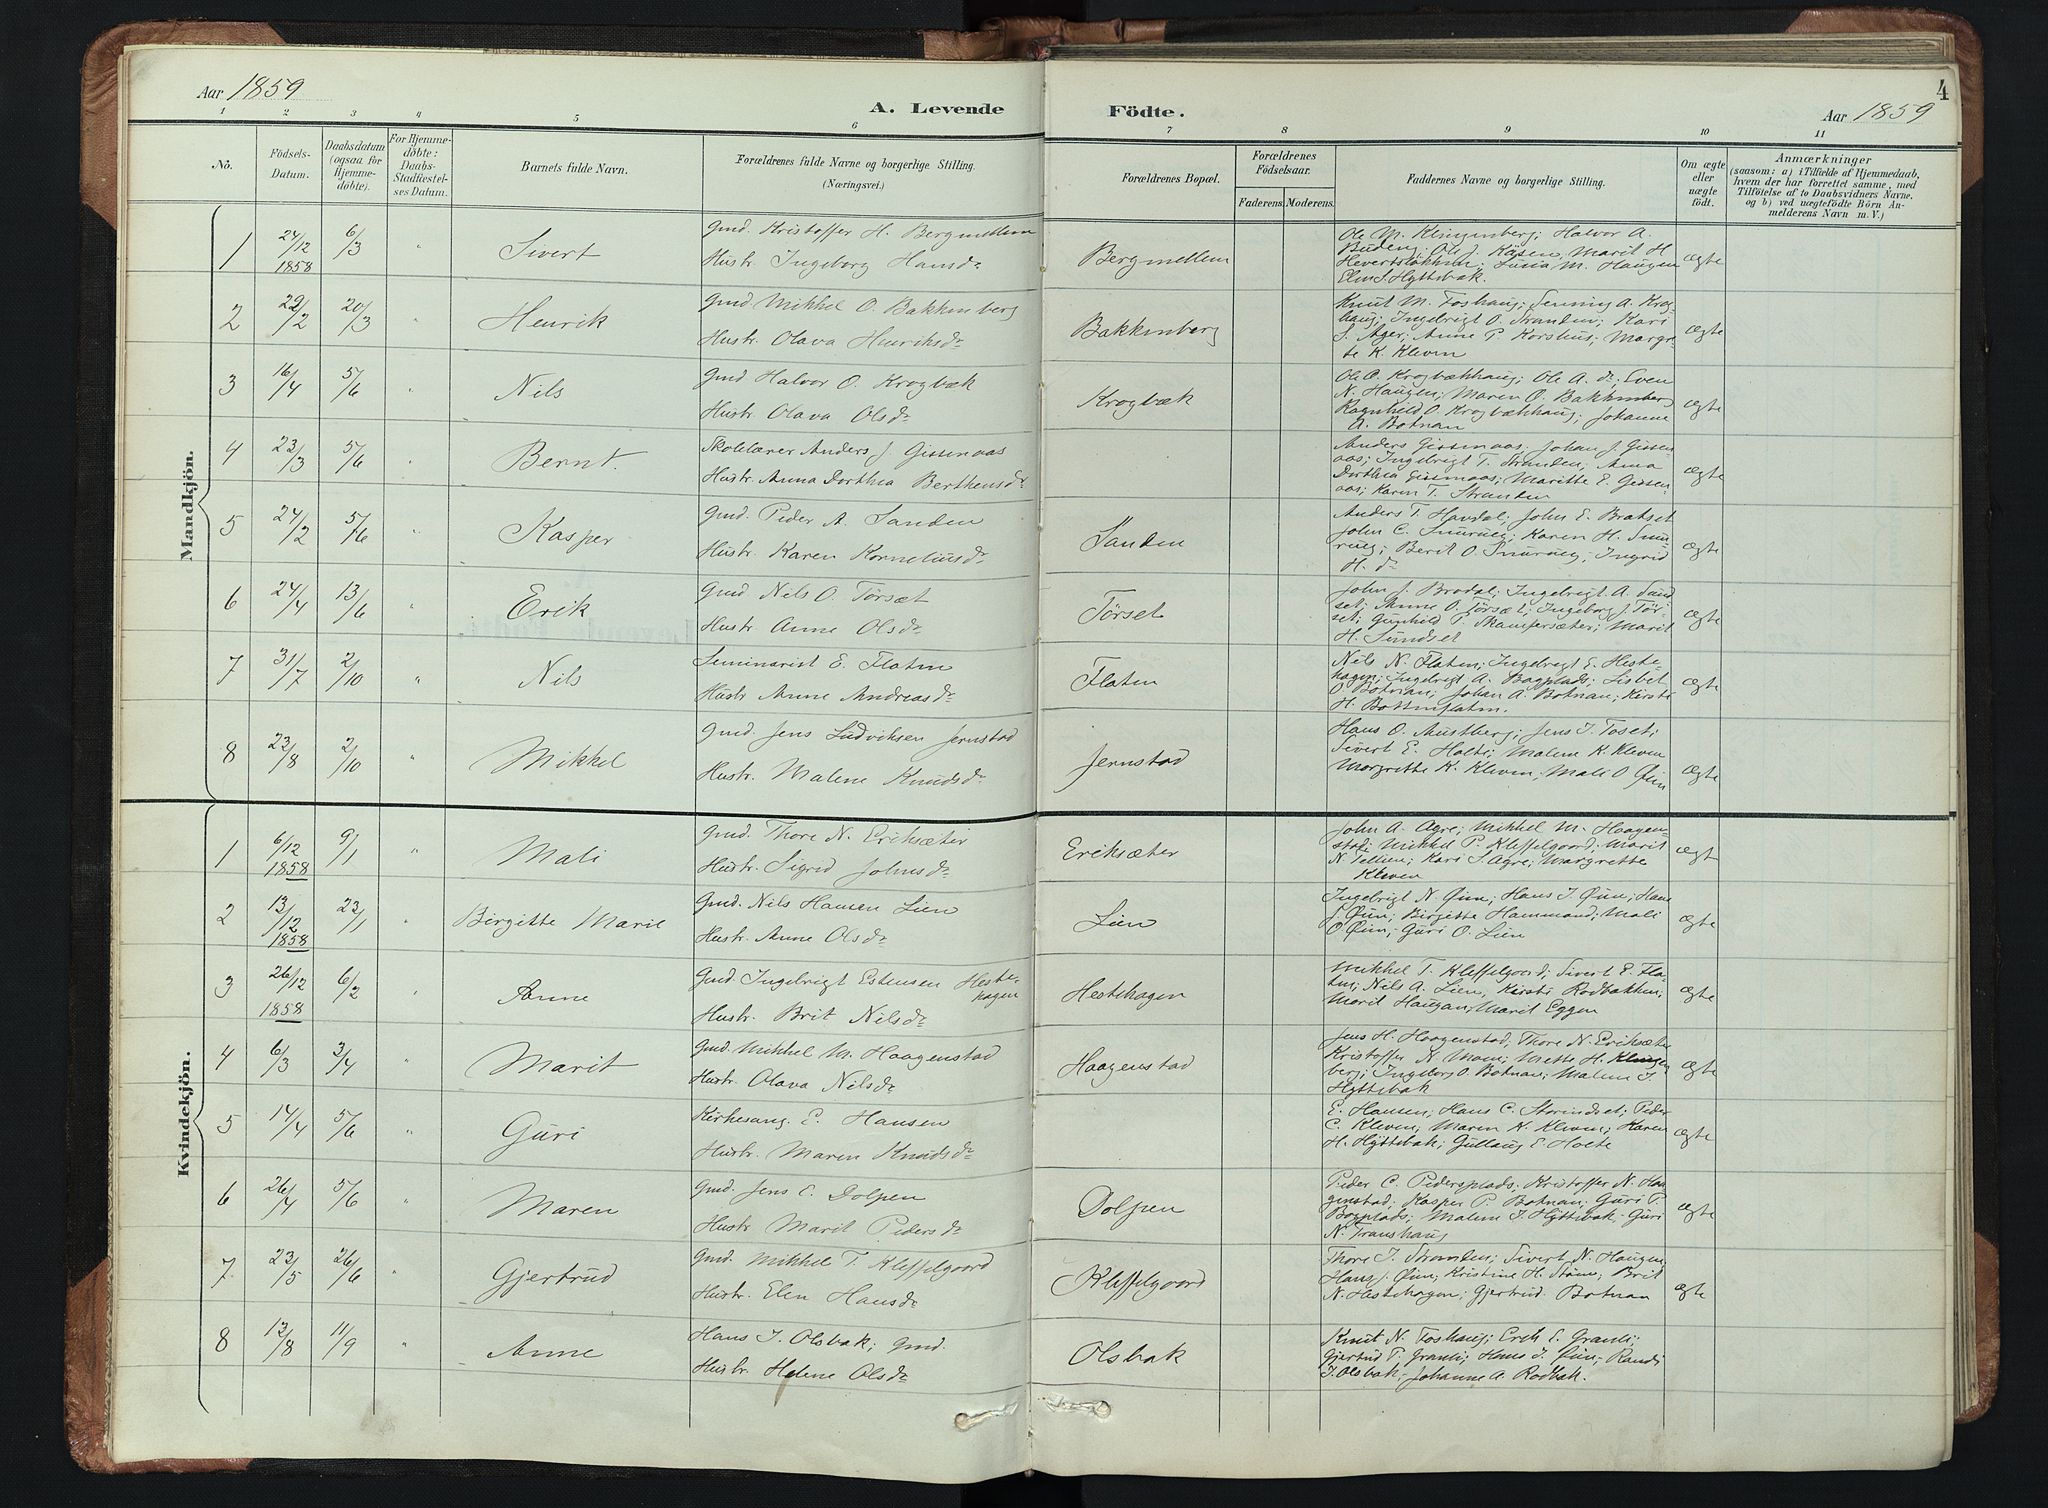 4
Aar 1859
A. Levende Födte.
Aar 1859
1 2 3 4 5 6 7 8 9 10 11
No.
Födsels-Datum.
Daabsdatum (ogsaa for Hjemme-döbte).
For Hjemme-döbte: Daabs-Stadfæstel-ses Datum.
Barnets fulde Navn.
Forældrenes fulde Navne og borgerlige Stilling. (Næringsvei.)
Forældrenes Bopæl.
Forældrenes Födselsaar.
Faderens. Moderens.
Faddernes Navne og borgerlige Stilling.
Om ægte eller uægte födt.
Anmærkninger
(saasom: a) i Tilfælde af Hjemmedaab,
hvem der har forrettet samme, med
Tilföielse af to Daabsvidners Navne.
og b) ved uægtefödte Börn An-
melderens Navn m. V.)
Mandkjön.
1 24/12 1858 6/3 " Sivert
Gmd. Kristoffer H. Bergmellem
Hustr. Ingeborg Hansdr
Bergmellem
Ole M. Klingenberg; Halvor A.
Budeng; Ole J. Kåsen; Marit H
M. Haugen
Elen S. Hyttebak.
ægte
2 22/2 20/3 " Henrik
Gmd. Mikkel O. Bakkenberg
Hustr. Olava Henriksdr
Bakkenberg
Knut M. Foshaug; Senning A. Krog-
haug; Ingebrigt O. Stranden; Kari
S. Ager; Anne P. Korshus; Margre-
te K. Kleven
ægte
3 16/4 5/6 " Nils
Gmd Halvor O. Krogbæk
Hustr. Olava Olsdr
Krogbæk
Ole O. Krogbækhaug; Ole A. dr; Sven
N. Haugen; Maren O. Bakkenberg
Ragnheld O. Krogbækhaug; Johanne
A. Botnan
ægte
4 23/3 5/6 " Bernt.
Skolelærer Anders J. Gissenaas
Hustr. Anna Dorthea Berthensdr
Anders Gissenaas; Johan J. Gissen-
aas; Ingebrigt T. Stranden; Anna
Dorthea Gissenaas; Maritte E. Gissen-
aas; Karen T. Stranden
ægte
5 24/2 5/6 Kasper
Gmd. Peder A. Sanden
Hustr. Karen Korneliusdr
Sanden
Anders T. Havdal; John E. Bratset
John C. Snurueg; Karen H. Snu-
rueg; Berit O. Snurueg; Ingrid
H. dr
ægte
6 24/4 13/6 " Erik
Gmd Nils O. Törsæt
Hustr. Anne Olsdr
Törset
John J. Brødal; Ingebrigt A. Sund-
set; Anne O. Törsæt; Ingeborg J. Tör-
set; Gunhild P. Skamfersæter; Marit
H. Sundset
ægte
7 31/7 2/10 " Nils
Seminarist E. Flaten
Hustr Anne Andreasdr
Flaten
Nils N. Flaten; Ingebrigt E. Heste-
hagen; Ingebrigt A. Bagplads; Lisbet
O Botnan; Johan A. Botnan; Kirsti
H. Bottenflaten.
ægte
8 23/8 2/10 " Mikkel
Gmd. Jens Ludviksen Jernstad
Hustr. Malene Knudsdr
Jernstad
Hans O. Austberg; Jens J. Toset;
Sivert E. Holte; Malene K. Kleven
Margrette K. Kleven; Mali O Øien
ægte
Kvindekjön.
1 6/12 1858 9/1 " Mali
Gmd. Thore N. Eriksæter
Hustr. Sigrid Johnsdr
Eriksæter
John A. Agre; Mikkel M. Haagen-
stad; Mikkel P. Kleffelgaard; Marit
N. Tellien; Kari S. Agre; Margrette
Kleven
ægt
2 13/12 1858 23/1 " Birgitte Marie
Gmd. Nils Hansen Lien
Hustr. Anne Olsdr
Lien
Ingebrigt N. Øien; Hans J. Øien; Hans
J. Øien; Birgitte Hammond; Mali
O. Øien; Guri O. Lien
ægte
3 26/12 1858 6/2 Anne
Gmd Ingebrigt Estensen Heste-
hagen
Hustr. Brit Nilsdr
Hestehagen
Mikkel T. Kleffelgaard; Sivert E. Fla-
ten; Nils A. Lien, Kirsti Rodbakken;
Marit Haugan; Marit Eggen
ægte
4 6/3 3/4 " Marit
Gmd. Mikkel M. Haagenstad
Hustr. Olava Nilsdr
Haagenstad
Jens H. Haagenstad, Thore N. Eriksæter
Kristoffer N. Moen; Mette H. Klingen
berg; Ingeborg O. Botnan; Malene J.
Hyttebak
ægte
5 14/4 5/6 " Guri
Kirkesang. E. Hansen
Hustr. Maren Knudsdr
E. Hansen; Hans C. Storindset; Peder
C. Kleven; Maren K. Kleven; Karen
H. Hyttebak; Gullaug E. Holte
ægte
6 26/4 5/6 " Maren
Gmd. Jens E. Dolpen
Hustr. Marit Pedersdr
Dolpen
Peder C. Pedersplads; Kristoffer N. Haa-
genstad; Kasper P. Botnan; Guri P.
Bagplads; Malene J. Hyttebak; Guri
N. Trønshaug
ægte
7 23/5 26/6 Gjertrud
Gmd. Mikkel T. Kleffelgaard
Hustr. Elen Hansdr
Kleffelgaard
Thore J. Stranden; Sivert N. Haugen
Hans J. Øien; Kristine H. Støen; Brit
N. Hestehagen; Gjertrud Botnan
ægte
8 12/8 11/9 " Anne
Hans J. Olsbak; Gmd.
Hustr. Helene Olsdr
Olsbak
Knut N. Foshaug; Erik E. Granli;
Gjertrud T. Granli; Hans J. Øien; Randi
J. Olsbak; Johanne A. Rødbak.